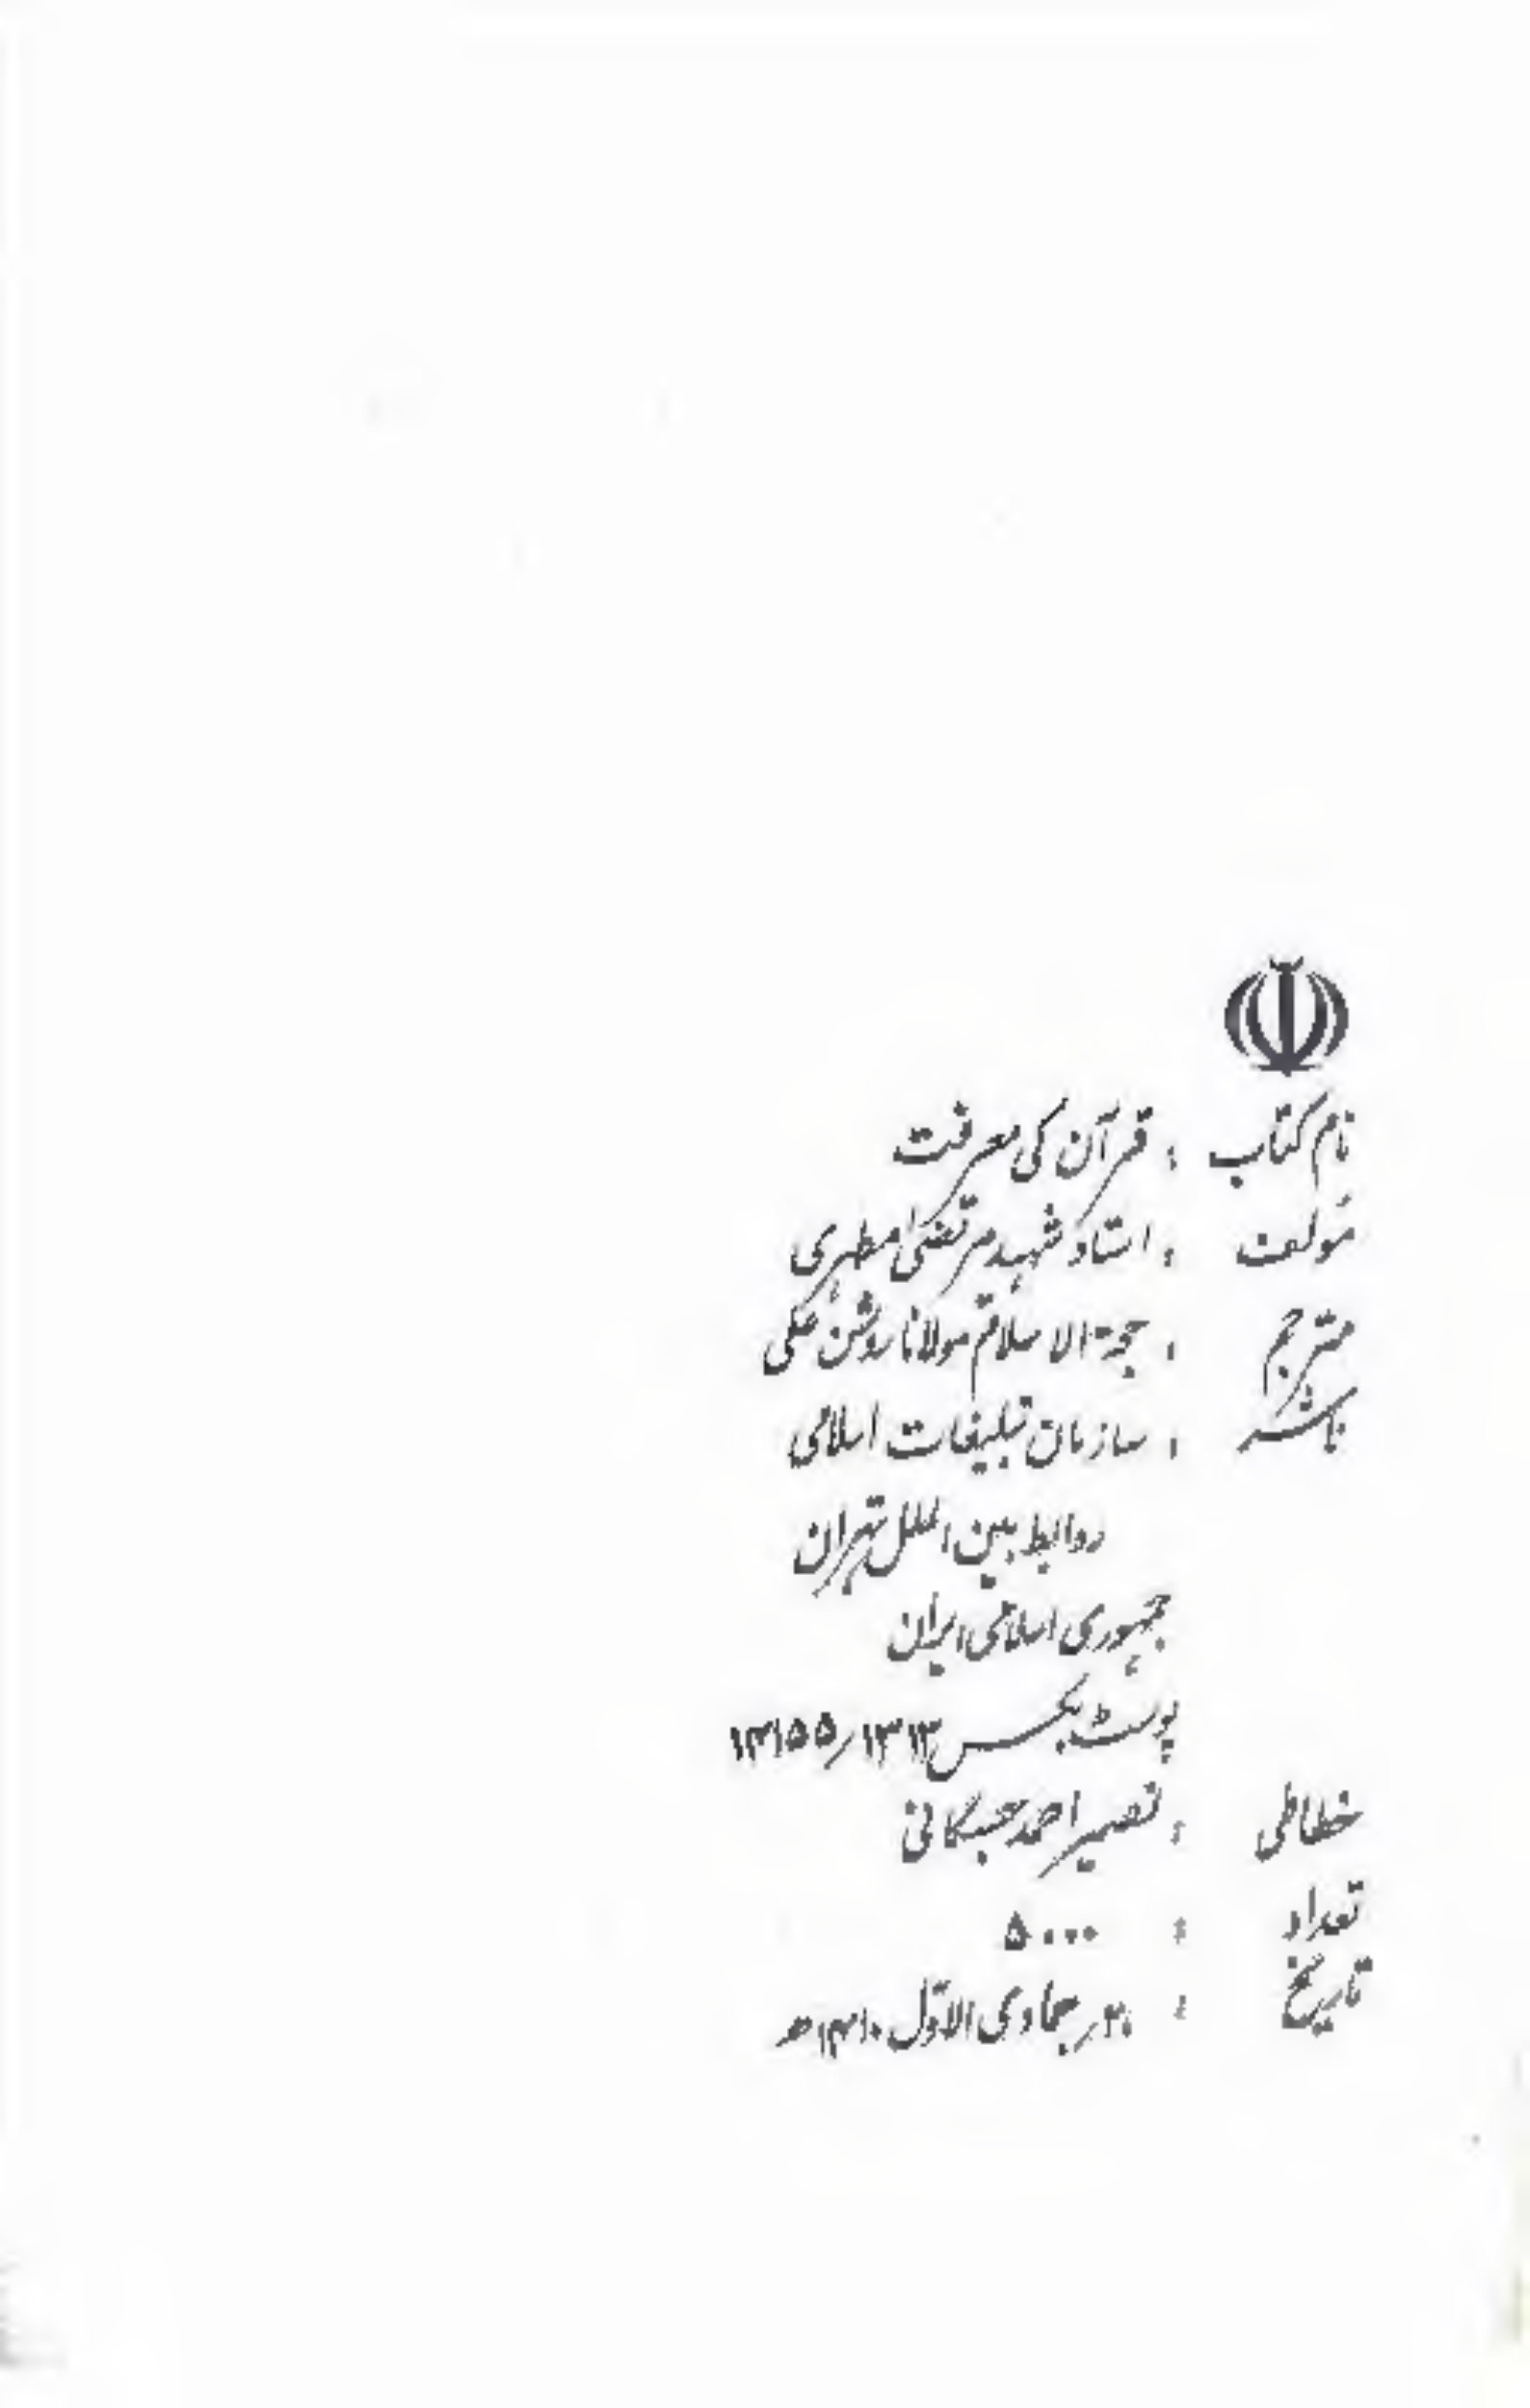 نام کتاب : قرآن کی معرفت
مؤلف : استاد شہید مرتضیٰ مطہری
مترجم : حجۃ الاسلام مولانا روشن علی
ناشر : سازمان تبلیغات اسلامی
روابط بین الملل تہران
جمہوری اسلامی ایران
پوسٹ بکس ۱۳۱۳؍۱۴۱۵۵
خطاطی : نصیر احمد
تعداد : ۵۰۰۰
تاریخ : جمادی الاوّل ۱۴۱۰ھ